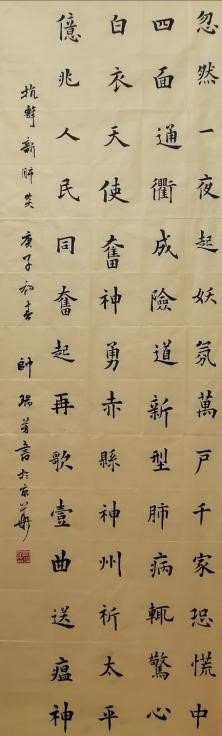 忽然一夜起妖氛萬戶千家恐慌中
四面通衢成險道新型肺病輒驚心
白衣天使奮神勇赤縣神州祈太平
億兆人民同奮起再歌壹曲送瘟神
抗擊新肺炎 庚子初春 帥瑞芳書於京華